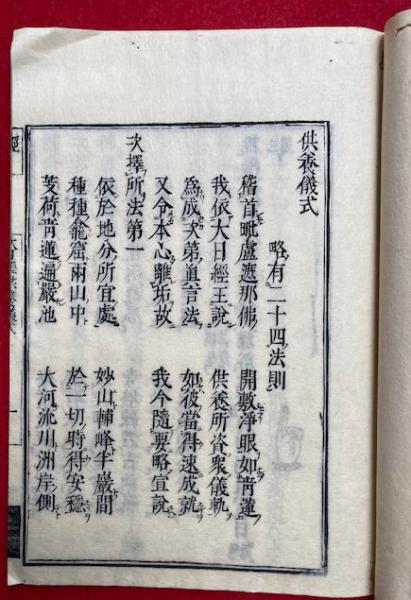 供養儀式
略有二十四法則
稽首毗盧遮那佛　開敷淨眼如靑蓮
我依大日經王說　供養所資衆儀軌
爲成次第眞言法　如彼當得速成就
又令本心離垢故　我今隨要略宣說
次擇所法第一
依於地分所宜處　妙山輔峰半巖間
種種龕窟兩山中　於一切時得安穩
芰荷靑蓮遍嚴池　大河流川洲岸側
經